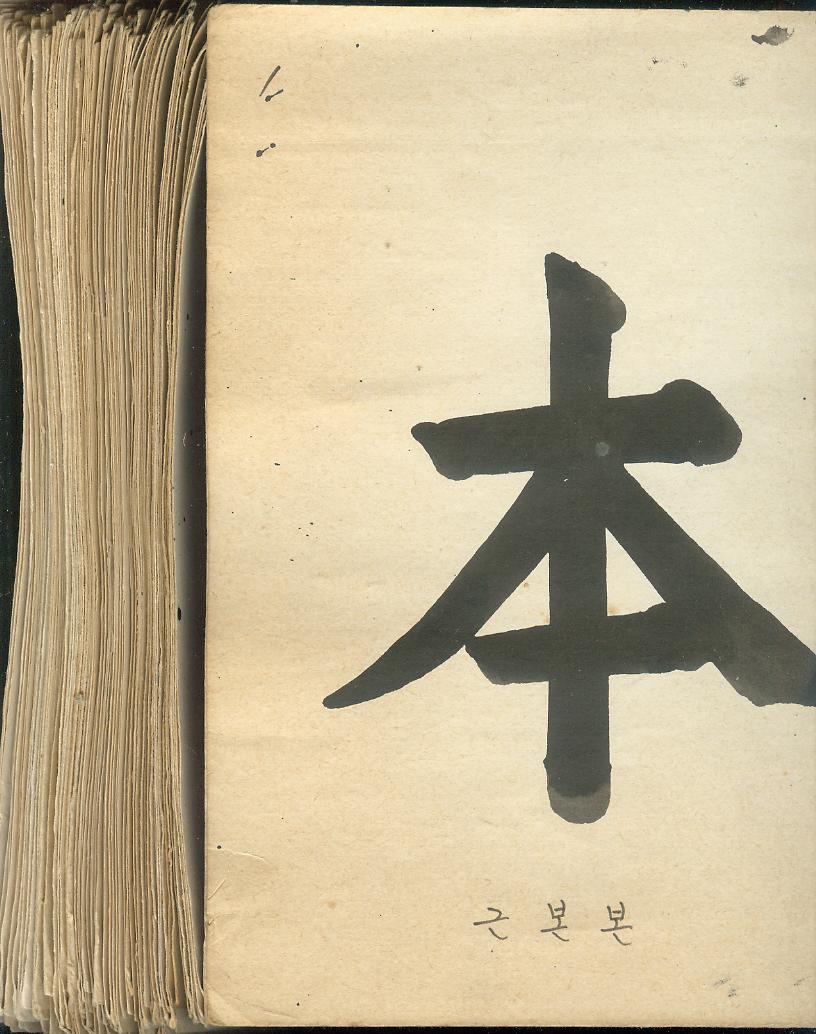 本
근본본